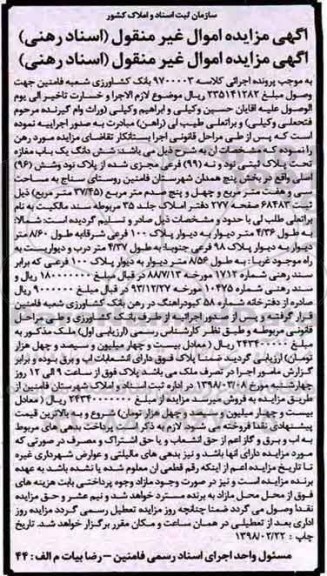 سازمان ثبت اسناد و املاک کشور
آگهی مزایده اموال غیر منقول (اسناد رهنی)
آگهی مزایده اموال غیر منقول (اسناد رهنی)
به موجب پرونده اجرائی کلاسه ۹۷۰۰۰۰۳ بانک کشاورزی شعبه فامنین جهت
وصول مبلغ ۲۳۵۱۴۱۲۸۲ ریال موضوع لازم الاجرا و خسارت تاخیر الی یوم
الوصول علیه آقایان حسین وکیلی و ابراهیم وکیلی (وراث وام گیرنده مرحوم
فتحعلی وکیلی) و براتعلی طلب لی (راهن) مبادرت به صدور اجراییه نموده
است که پس از طی مراحل قانونی اجرا بستانکار تقاضای مزایده مورد رهن
را نموده که مشخصات آن به شرح ذیل می باشد: شش دانگ یک باب مغازه
تحت پلاک ثبتی نود و نه (۹۹) فرعی مجزی شده از پلاک نود وشش (۹۶)
اصلی واقع در بخش پنج همدان شهرستان فامنین روستای سناج به مساحت
سی و هفت متر مربع و چهل و پنج صدم متر مربع (۳۷/۴۵) متر مربع) ذیل
ثبت ۶۸۴۸۳ صفحه ۲۷۷ دفتر املاک جلد ۳۵ مربوطه سند مالکیت به نام
براتعلی طلب لی با حدود و مشخصات ذیل صادر و تسلیم گردیده است: شمالا:
به طول ۴/۳۶ متر دیوار به دیوار پلاک ۱۰۰ فرعی شرقا به طول ۸/۶۰ متر
دیوار به دیوار پلاک ۹۸ فرعی جنوبا: به طول ۴/۳۷ متر درب و دیواریست به
راه موجود غربا: به طول ۸/۵۶ متر دیوار به دیوار پلاک ۱۰۰ فرعی که برابر
سند رهنی شماره ۱۷۱۲ مورخه ۸۸۷/۱۳ در قبال مبلغ ۱۸۰۰۰۰۰۰۰ ریال و
سند رهنی شماره ۱۰۴۷۵ مورخه ۹۳/۱۲/۲۷ در قبال مبلغ ۹۰۰۰۰۰۰۰ ریال
صادره از دفترخانه شماره ۵۸ کبودراهنگ در رهن بانک کشاورزی شعبه فامنین
قرار گرفته و پس از صدور اجرائیه از طرف بانک کشاورزی و طی مراحل
قانونی مربوطه و طبق نظر کارشناس رسمی (ارزیابی اول) ملک مذکور به
مبلغ ۲۴۳۴۰۰۰۰۰ ریال (معادل بیست و چهار میلیون و سیصد و چهل هزار
تومان) ارزیابی گردید. ضمنا پلاک فوق دارای انشعابات آب و برق بوده و برابر
گزارش مامور اجرا در تصرف ملک می باشد پلاک فوق از ساعت ۹ الی ۱۲ روز
چهارشنبه مورخ ۱۳۹۸/۰۳/۰۸ در اداره ثبت اسناد و املاک شهرستان فامنین از
طریق مزایده به فروش میرسد مزایده از مبلغ ۲۴۳۴۰۰۰۰۰ ریال (معادل
بیست و چهار میلیون و سیصد و چهل هزار تومان) شروع و به بالاترین قیمت
پیشنهادی نقدا فروخته می شود. لازم به ذکر است پرداخت بدهی های مربوط
به آب و برق و گاز اعم از حق انشعاب و یا حق اشتراک و مصرف در صورتی که
مورد مزایده دارای آنها باشد و نیز بدهی های مالیاتی و عوارض شهرداری غیره
تا تاریخ مزایده اعم از اینکه رقم قطعی آن معلوم شده یا نشده باشد به عهده
برنده مزایده است و نیز در صورت وجود مازاد وجوه پرداختی بابت هزینه های
فوق از محل مازاد به برنده مسترد خواهد شد و نیم عشر و حق مزایده
نقدا وصول می گردد ضمنا چنانچه روز مزایده تعطیل رسمی گردد مزایده روز
اداری بعد از تعطیلی در همان ساعت و مکان مقرر برگزار خواهد شد. تاریخ
چاپ: ۱۳۹۸/۰۲/۲۲
مسئول واحد اجرای اسناد رسمی فامنین - رضا بیات م الف: ۴۴